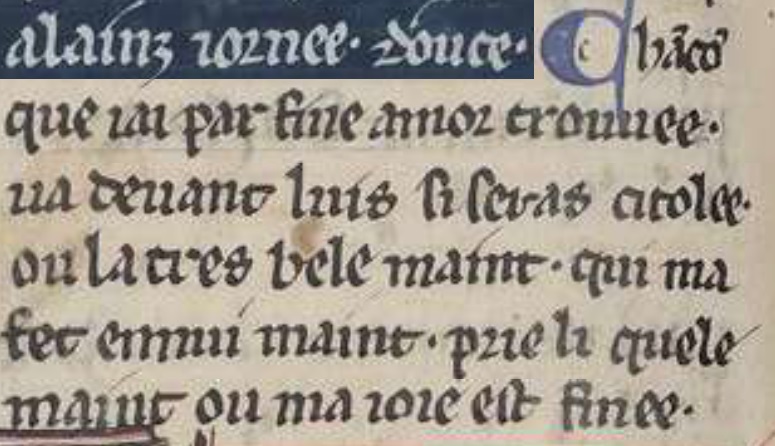 alainz iornee. douce. Chācō
que iai par fine amor trouuee.
ua deuant luis si seras citolee.
ou la tres bele maint. qui ma
fet ennui maint. prie li quele
maint ou ma ioie est finee.